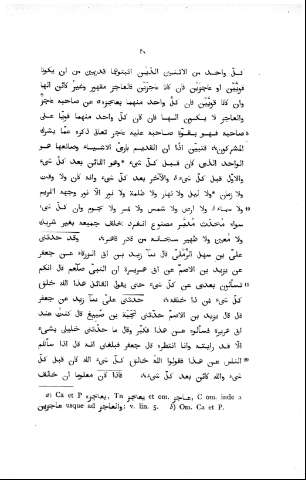 ٣٠
كلّ واحد من الاثنين الذَيْن اثبتوهما قديمين من ان يكونا
قويَّيْن او عاجزَيْن فان كانا عاجزَيْن فالعاجز مقهور وغير كائن الها
وان كانا قويَّيْن فان كلّ واحد منهما بعاجزه a عن صاحبه عاجز
والعاجز لا يكون الها فان كان كلّ واحد منهما قويّا على
صاحبه فهو بقوّة صاحبه عليه عاجز تعالى ذكره عمّا يشرك
المشركون، فتبيّن اذًا ان القديم بارئ الاشياء وصانعها هو
الواحد الذى كان قبل كلّ شىء وهو الكائن بعد كلّ شىء
والاوّل قبل كلّ شىء والآخر بعد كلّ شىء وانه كان ولا وقت
ولا زمان ولا ليل ولا نهار ولا ظلمة ولا نور الّا نور وجهه الكريم
ولا سماء ولا ارض ولا شمس ولا قمر ولا نجوم وان كلّ شىء
سواه محدَث مدبَّر مصنوع انفرد بخلق جميعه بغير شريك
ولا معين ولا ظهير سبحانه من قادر قاهر، وقد حدثنى
علىّ بن سهل الرَّمْلىّ قال نما زيد بن ابى الزرقاء عن جعفر
عن يزيد بن الاصمّ عن ابى هريرة ان النبىّ صلعم قال انكم
تُسألون بعدى عن كلّ شىء حتى يقول القائل هذا الله خلق
كلّ شىء فمن ذا خلقه، حدثنى علىّ نما زيد عن جعفر
قال قال يزيد بن الاصمّ حدثنى نَجَبَة بن صَبِيغ قال كنت عند
ابى هريرة فسألوه عن هذا فكبّر وقال ما حدّثنى خليلى بشىء
الّا قد رايته وانا انتظره قال جعفر فبلغنى انه قال اذا سألكم
الناس عن هذا فقولوا الله خالق كلّ شىء الله كان قبل كلّ
شىء والله كائن بعد كلّ شىء، فاذا كان معلوما ان خالق
a) Ca et P بعاجزه, Tn بعاجزه et om. عاجز, C om. inde a
عاجزين usque ad والعاجز: v. lin. 5. b) Om. Ca et P.